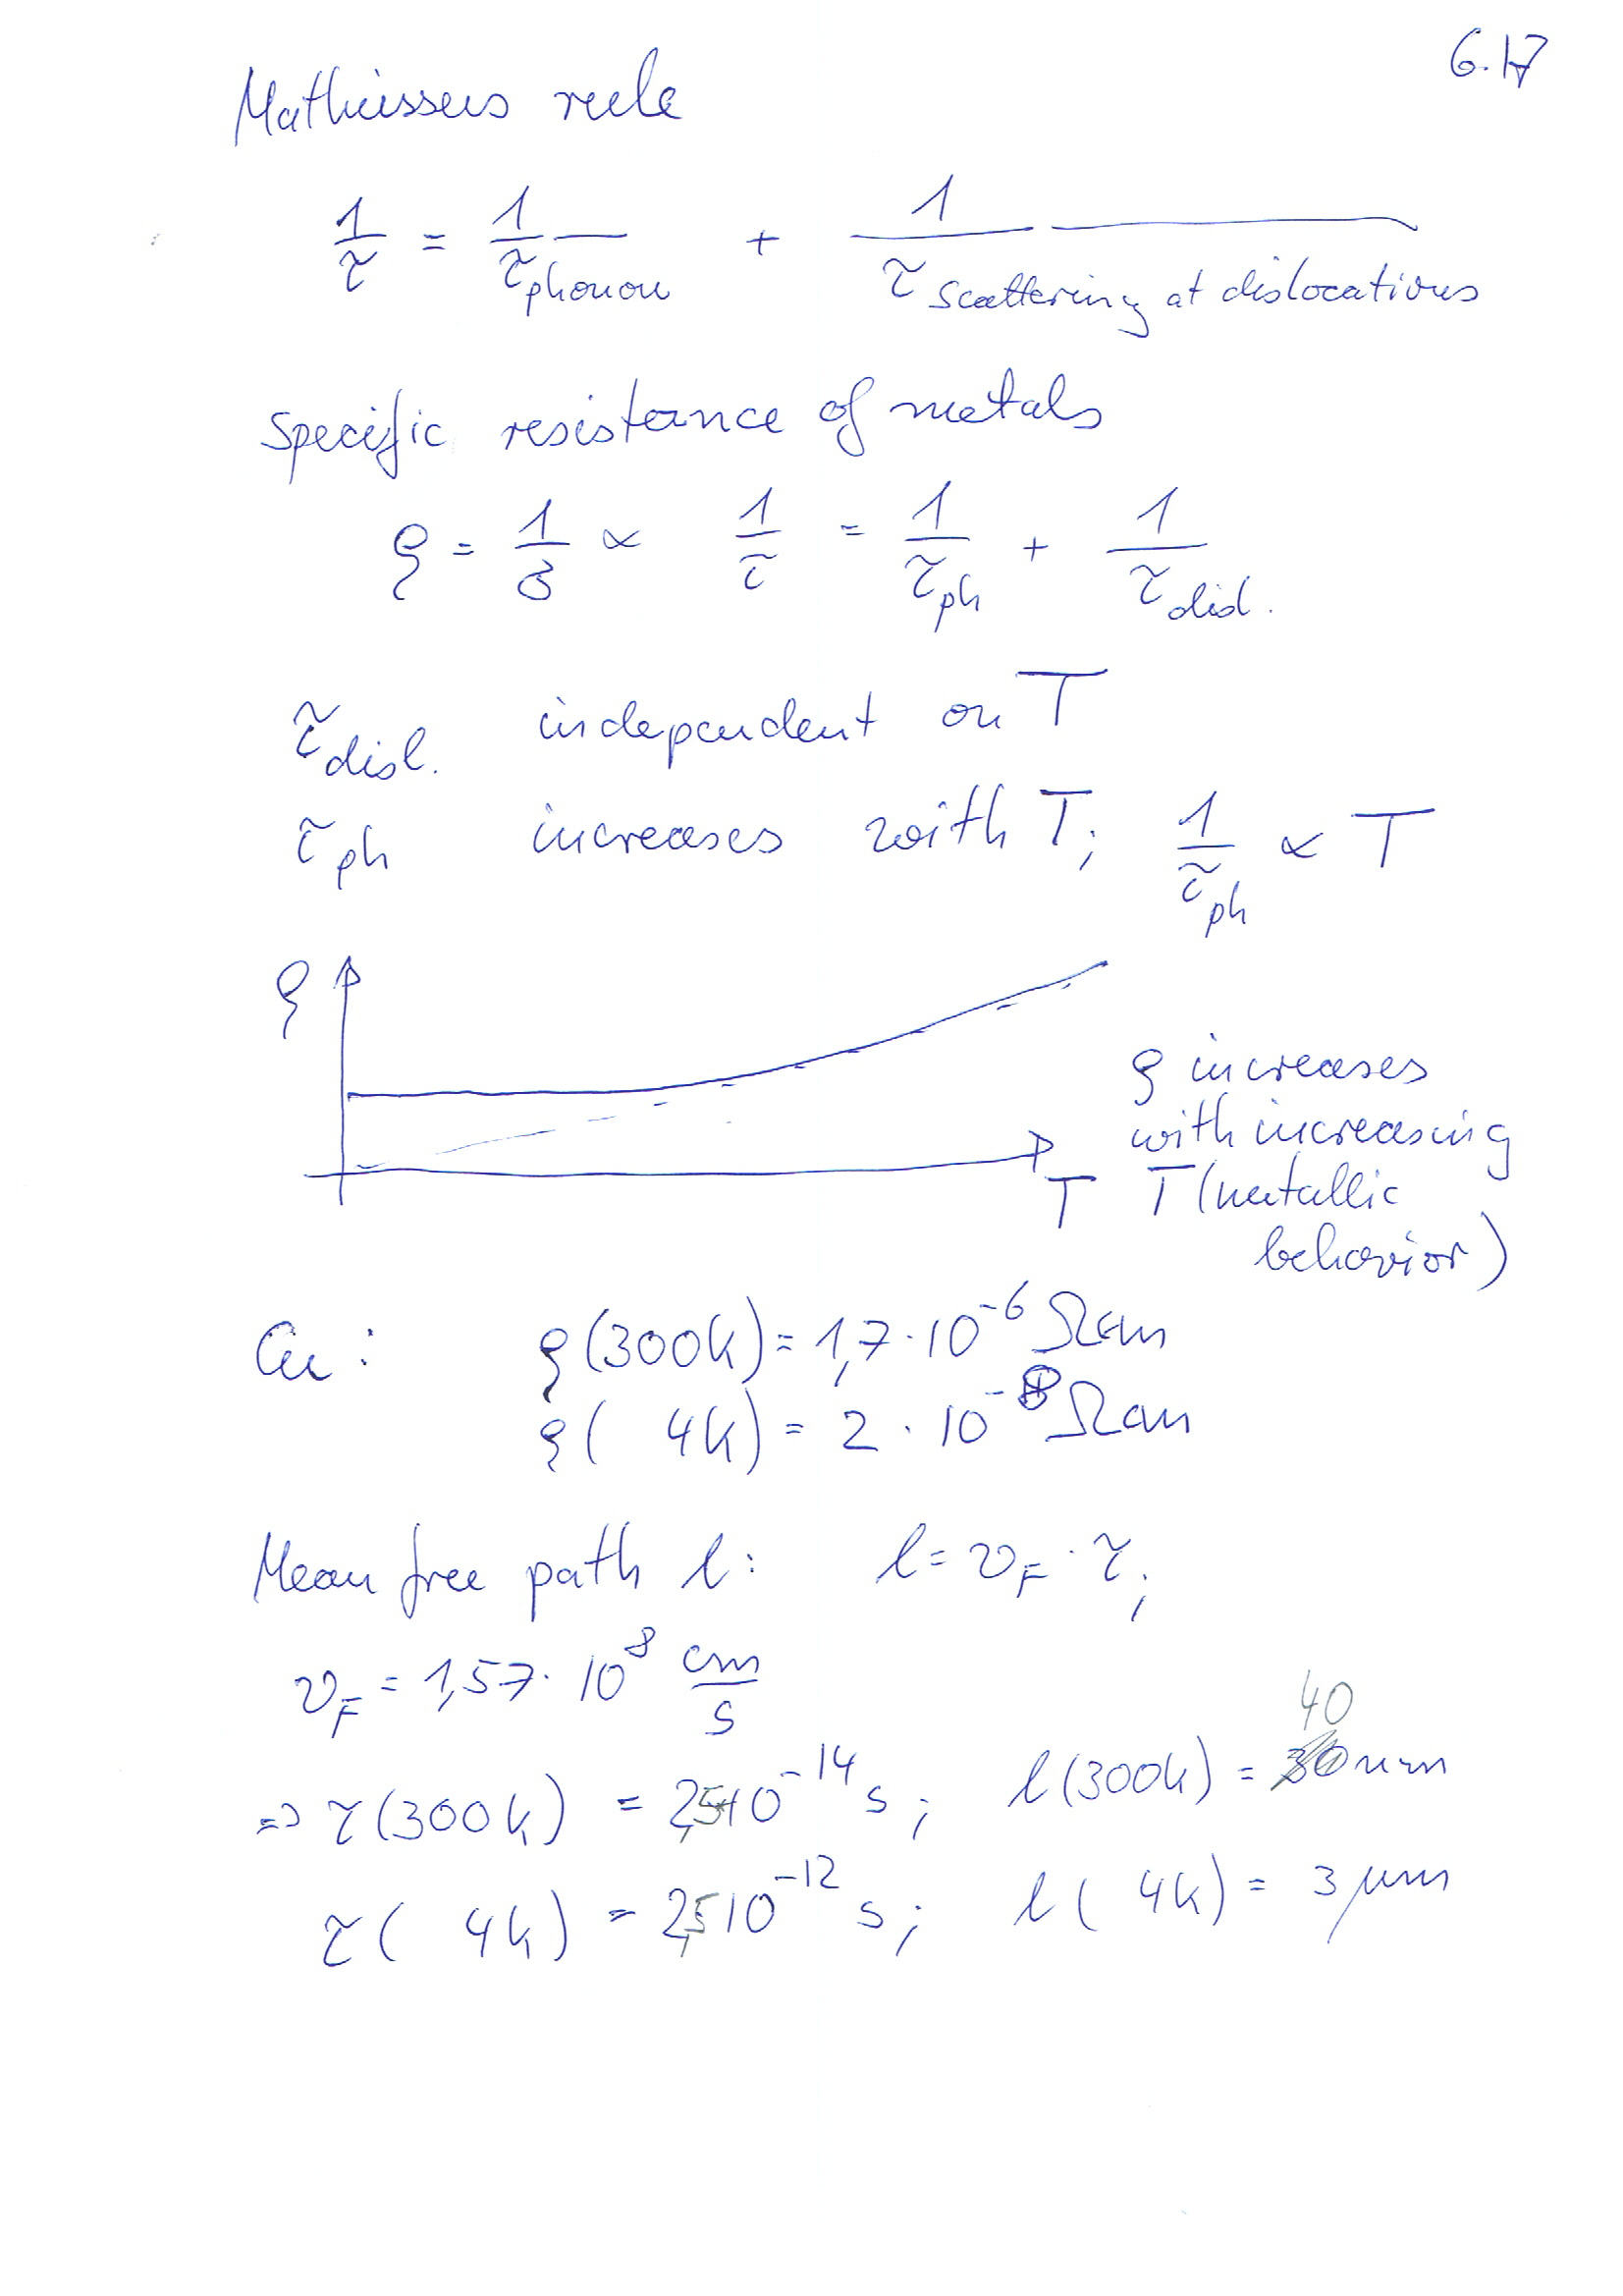 6.17
Mathiessens rule
1/τ = 1/τ_phonon + 1/τ_scattering at dislocations
Specific resistance of metals
ρ = 1/σ ∝ 1/τ = 1/τ_ph + 1/τ_disl.
τ_disl. independent on T
τ_ph increases with T; 1/τ_ph ∝ T
ρ
T
ρ increases
with increasing
T (metallic
behavior)
Cu: ρ(300K) = 1,7 · 10^-6 Ωcm
ρ( 4K) = 2 · 10^-8 Ωcm
Mean free path l: l = v_F · τ;
v_F = 1,57 · 10^8 cm/s
⇒ τ(300K) = 2,5 10^-14 s; l(300K) = 40 nm
τ( 4K) = 2,5 10^-12 s; l( 4K) = 3 μm